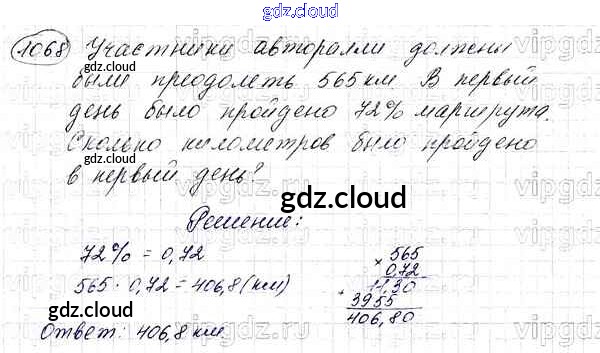 gdz.cloud
1068 Участники авторалли должны
были преодолеть 565 км. В первый
день было пройдено 72% маршрута.
Сколько километров было пройдено
в первый день?
gdz.cloud
gdz.cloud
gdz.cloud
Решение:
72% = 0,72
565 · 0,72 = 406,8 (км)
× 565
0,72
+ 11,30
3955
406,80
gdz.cloud
gdz.cloud
Ответ: 406,8 км.